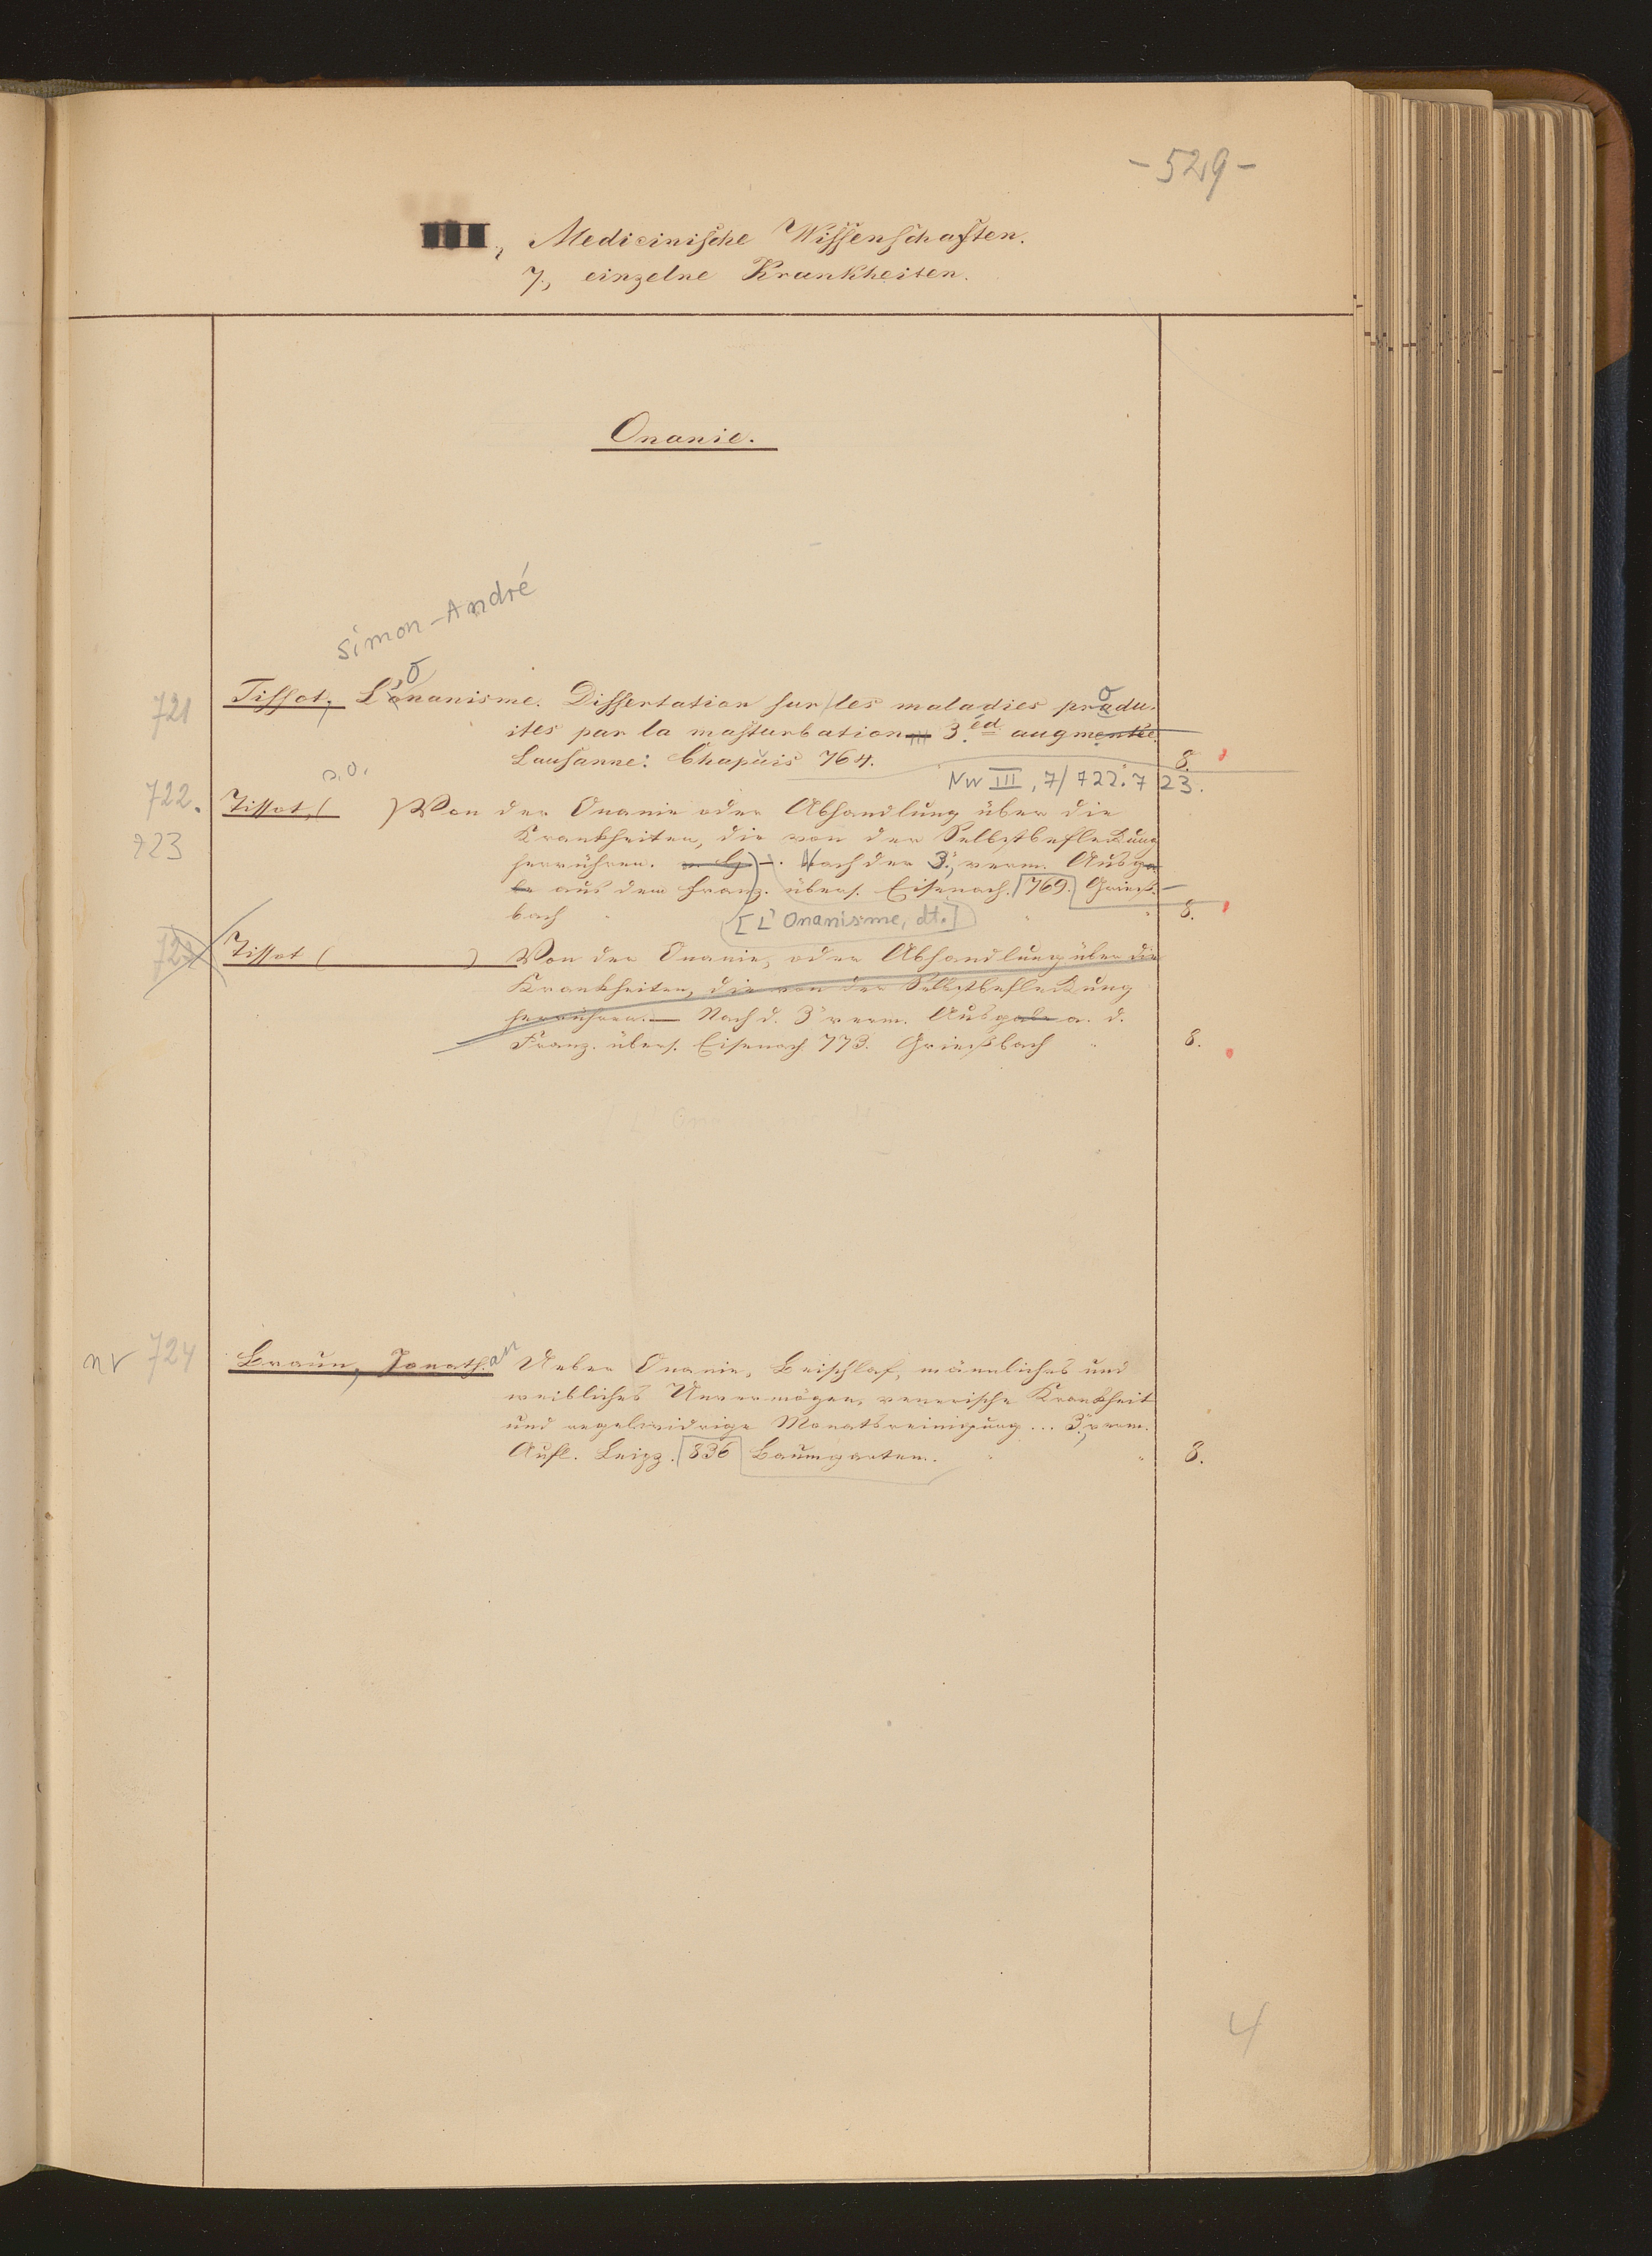 -529-
III., Medicinische Wissenschaften.
7., einzelne Krankheiten.
Onanie.
Simon-André
721 Tissot, L'Onanisme. Dissertation sur les maladies produ-
ites par la masturbation 3. éd augmentée
Lausanne: Chapuis 764. 8.
s.o. NW III, 7/722:723.
722. Tissot, ( ) Von der Onanie oder Abhandlung über die
723 Krankheiten, die von der Selbstbefleckung
herrühren. Nach der 3., verm. Ausga
be aus dem Franz. übers. Eisenach. 769. Griess-
bach 8.
[L'Onanisme, dt.]
723 Tissot ( ) Von der Onanie, oder Abhandlung über die
Krankheiten, die von der Selbstbefleckung
herrühren. — Nach d. 3 verm. Ausgabe a. d.
Franz. übers. Eisenach 773. Griessbach 8.
nr 724 Braun, Jonathan Ueber Onanie, Beischlaf, männliches und
weibliches Unvermögen, venerische Krankheit
und regelwidrige Monatsreinigung ... 3., verm.
Aufl. Leipz. 836 Baumgarten. 8.
4